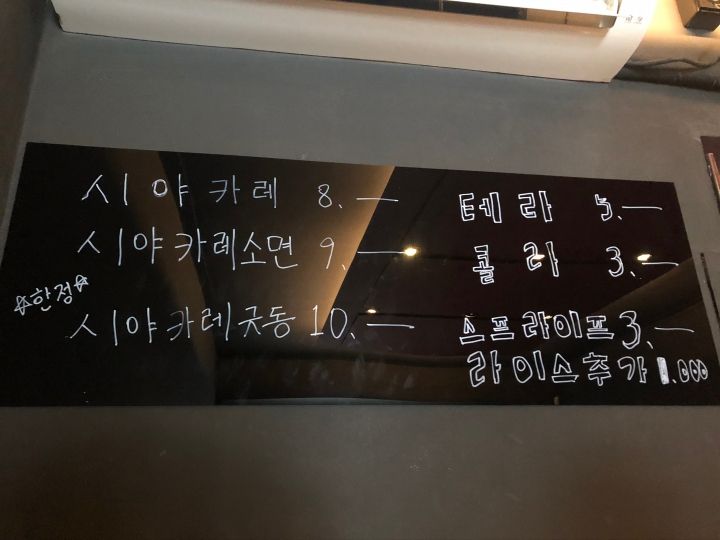 시야카레 8.—
시야카레소면 9.—
☆한정☆
시야카레규동 10.—
테라 5.—
콜라 3.—
스프라이프 3.—
라이스추가 1.000